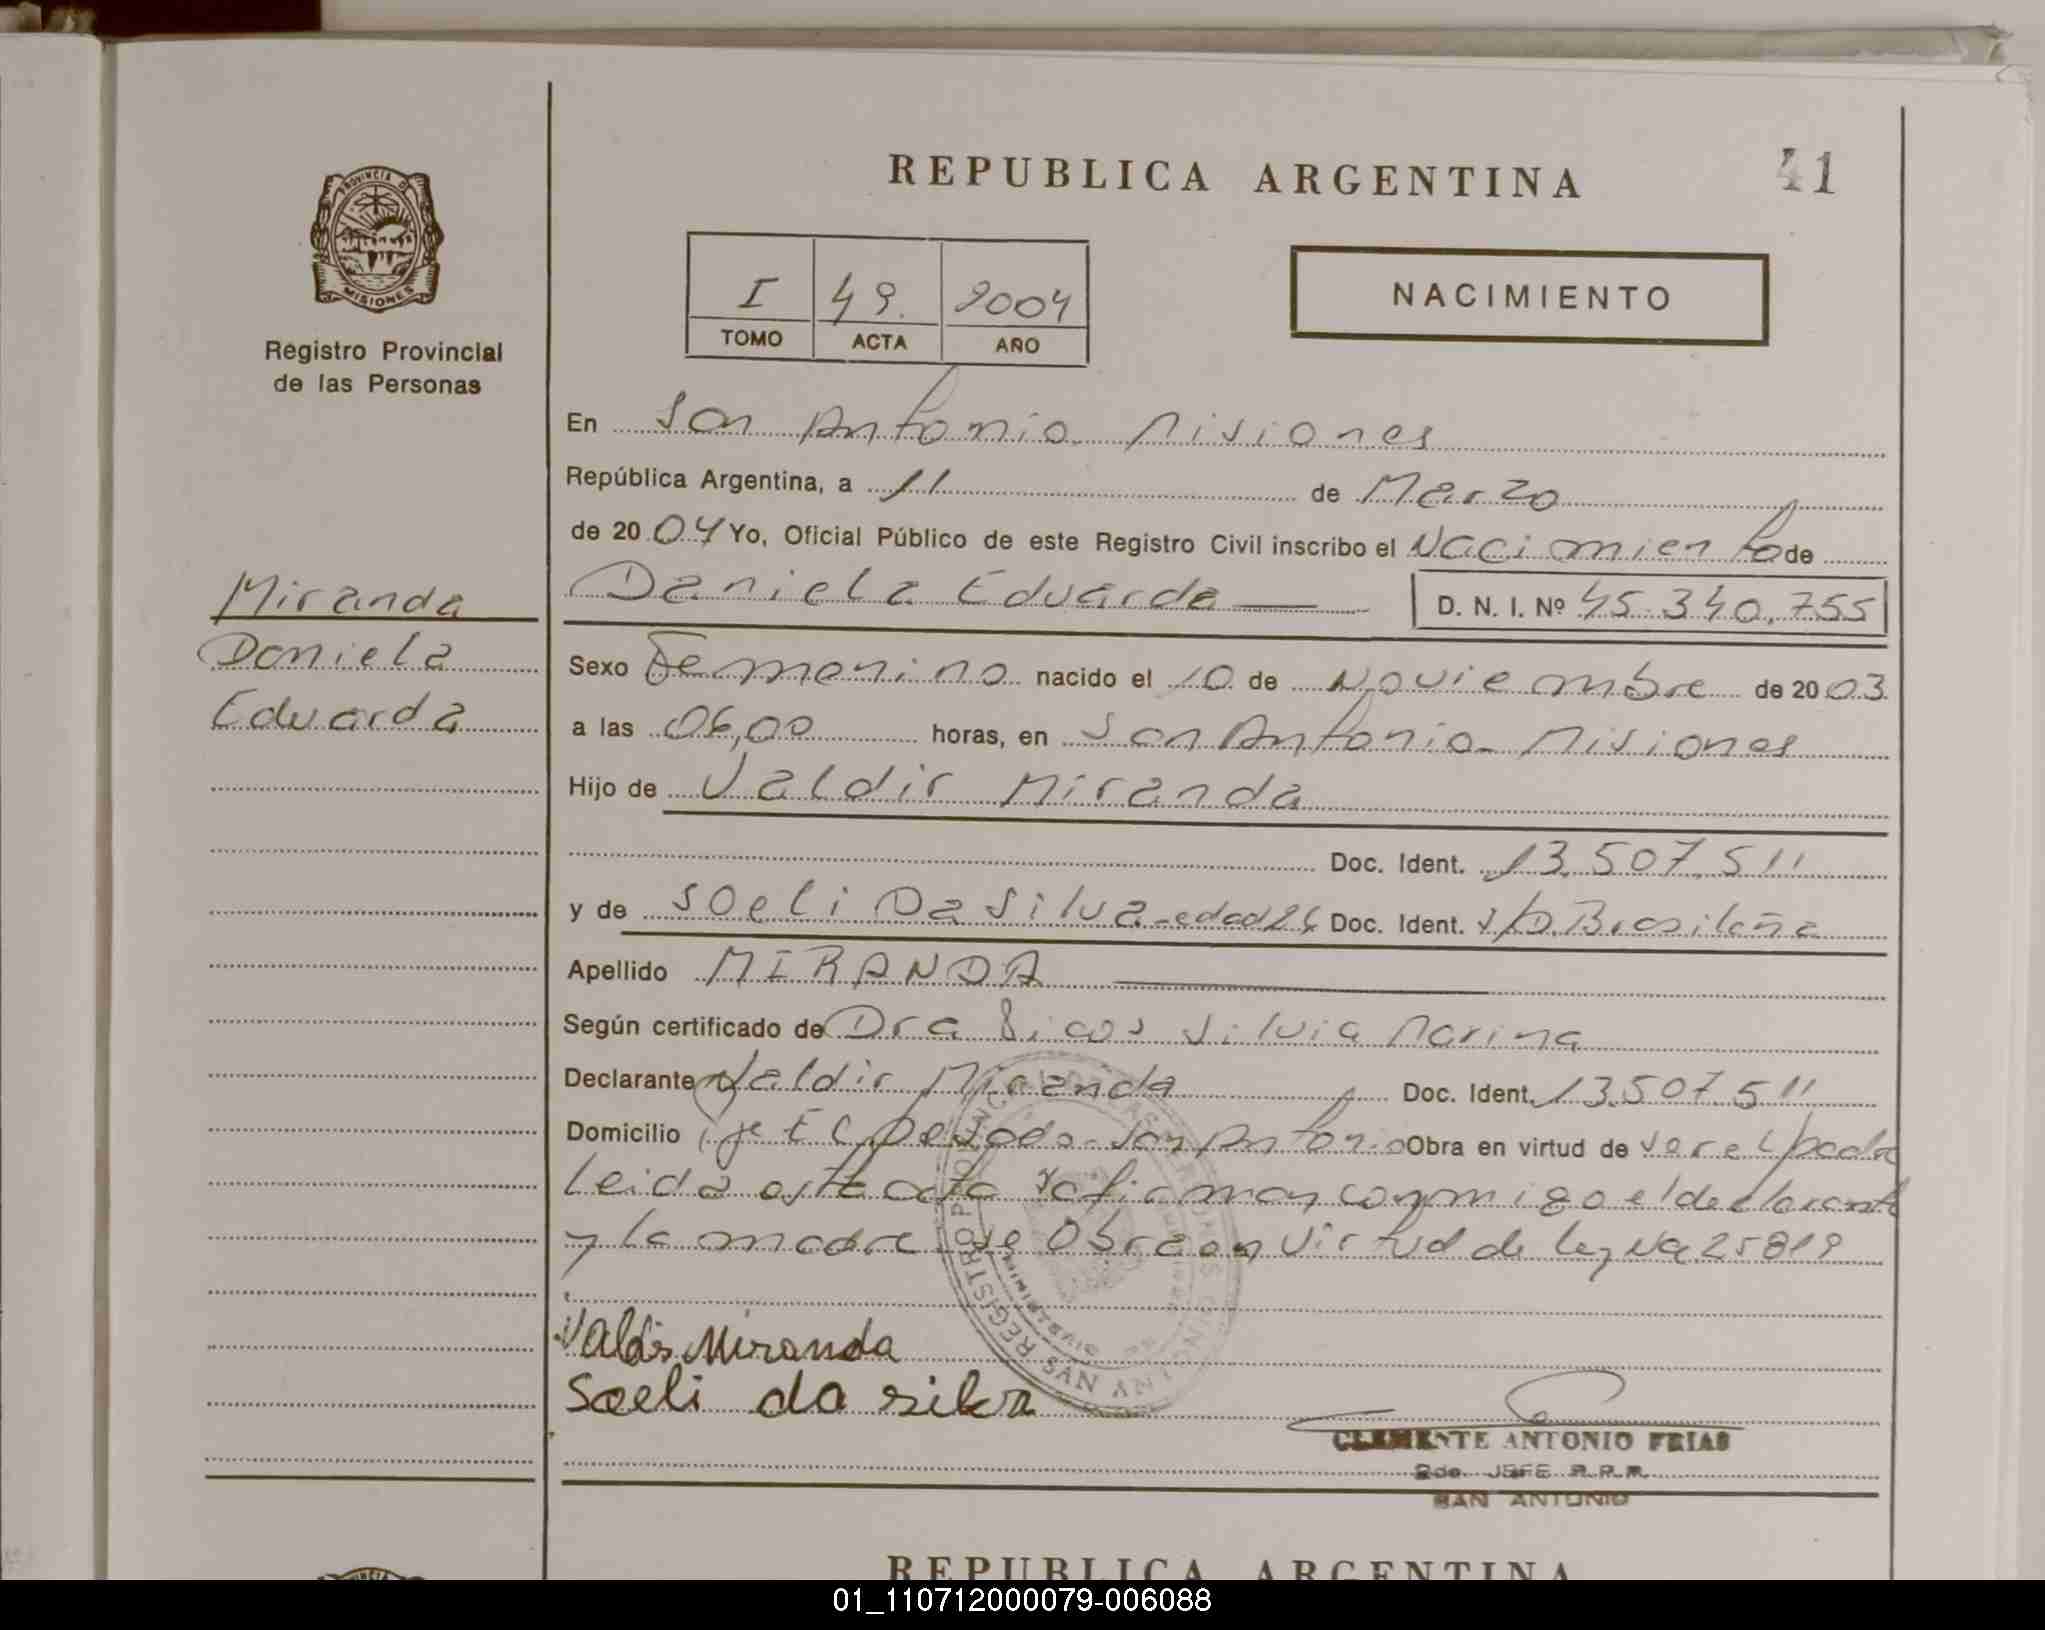 REPUBLICA ARGENTINA
41
PROVINCIA DE
MISIONES
Registro Provincial
de las Personas
I 49. 2004
TOMO ACTA AÑO
NACIMIENTO
En San Antonio Misiones
República Argentina, a 11 de Marzo
de 2004 Yo, Oficial Público de este Registro Civil inscribo el Nacimiento de
Daniela Eduarda D. N. I. Nº 45.340.755
Miranda
Daniela
Eduarda
Sexo Femenino nacido el 10 de Noviembre de 2003
a las 06,00 horas, en San Antonio Misiones
Hijo de Valdir Miranda
Doc. Ident. 13.507.511
y de Soeli Da Silva - edad 26 Doc. Ident. S/D. Brasileña
Apellido MIRANDA
Según certificado de Dra Silvia Marina
Declarante Valdir Miranda Doc. Ident. 13.507.511
Domicilio San Antonio Obra en virtud de ser el padre
Leida este acta la firman conmigo el declarante
y la madre se Obra en virtud de ley Nº 25819
Valdir Miranda
Soeli da silva
CLEMENTE ANTONIO FRIAS
2do. JEFE R.P.P.
SAN ANTONIO
REPUBLICA ARGENTINA
01_110712000079-006088